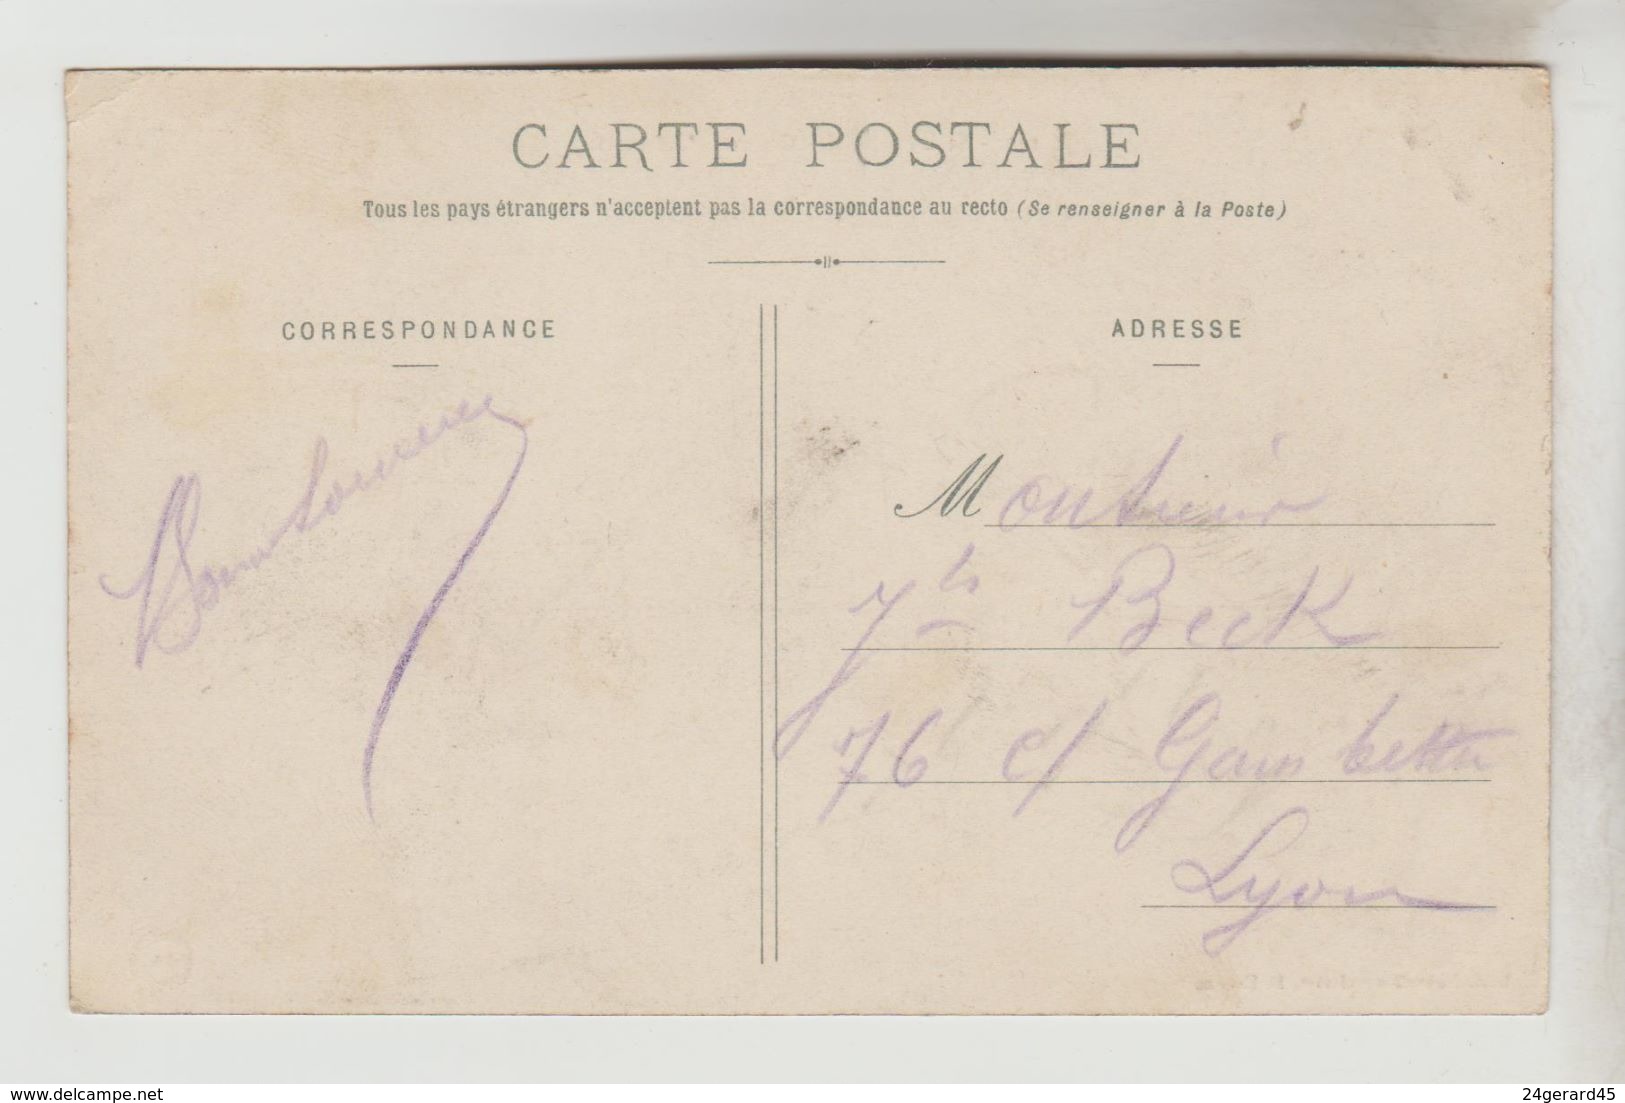 CARTE POSTALE
Tous les pays étrangers n'acceptent pas la correspondance au recto (Se renseigner à la Poste)
CORRESPONDANCE
ADRESSE
Bons Souvenirs
Monsieur
Beck
76 c/ Gambetta
Lyon
www.delcampe.net
24gerard45